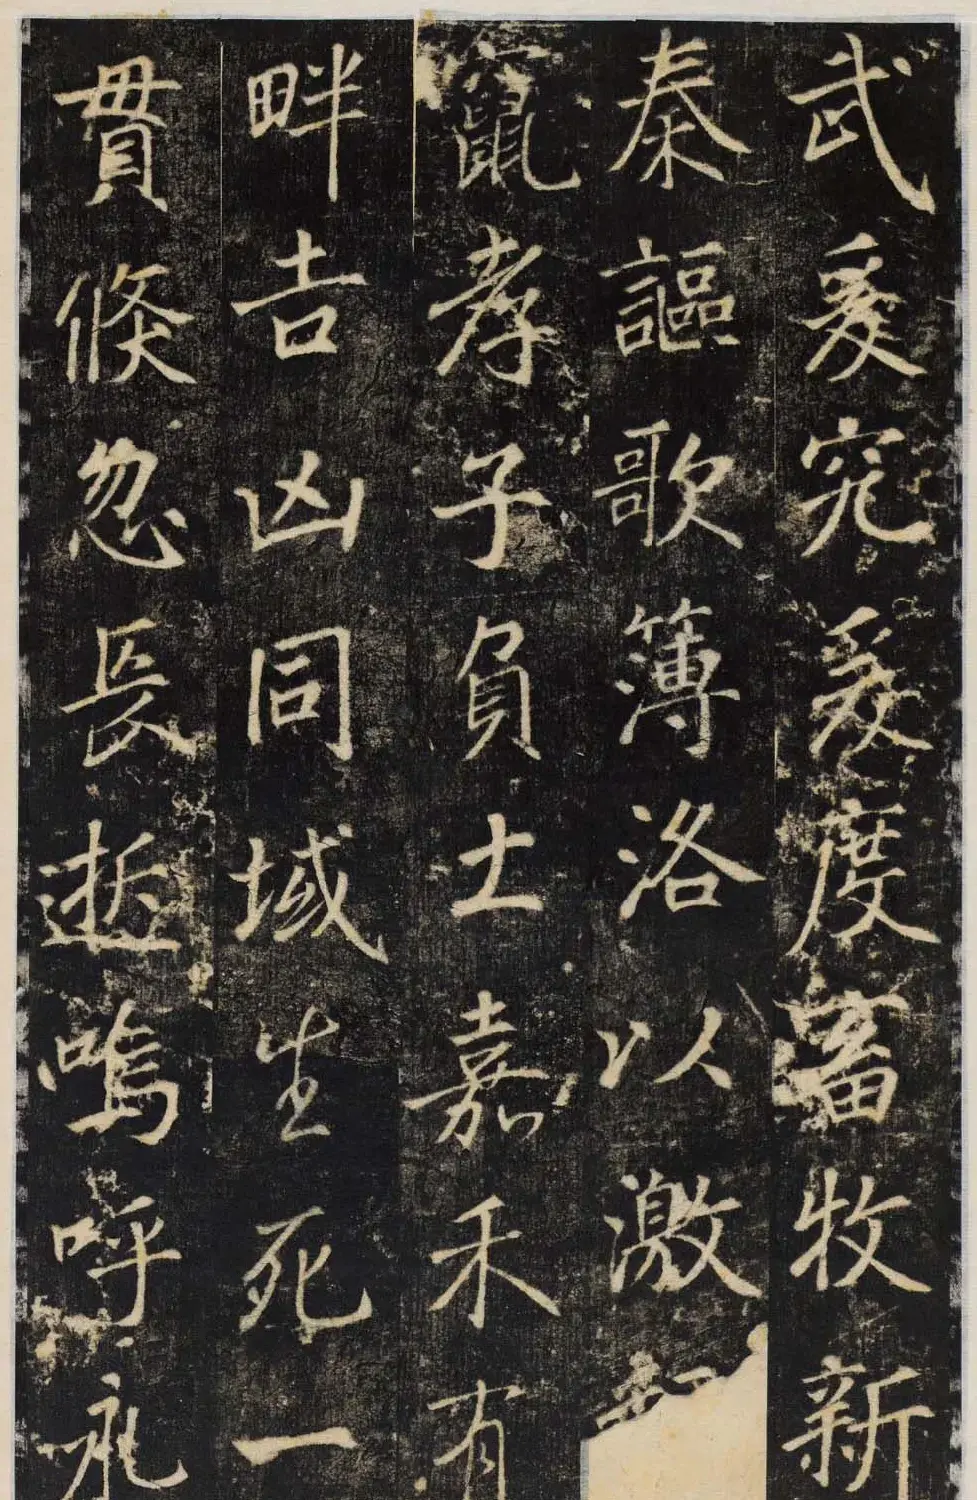 武爰究爰度畜牧新
秦謳歌簿洛以激
竄孝子負土嘉禾有
畔吉凶同域生死一
貫倐忽長逝嗚呼永